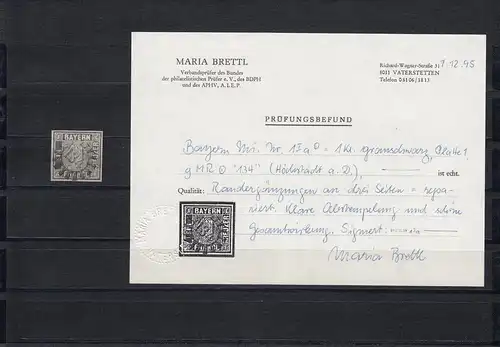 MARIA BRETTL
Verbandsprüfer des Bundes
der philatelistischen Prüfer e. V., des BDPH
und des APHV, A.I.E.P.
Richard-Wagner-Straße 31
8011 VATERSTETTEN
Telefon 08106/1815
1.12.95
PRÜFUNGSBEFUND
Bayern Mi. Nr. 1 I a = 1 Kr. grauschwarz, Platte 1
gMR "134" (Höchstädt a. D.), ist echt.
Qualität: Randergänzungen an drei Seiten = repa-
riert. Klare Abstempelung und schöne
Gesamtwirkung. Signiert:
Maria Brettl
BAYERN
BAYERN